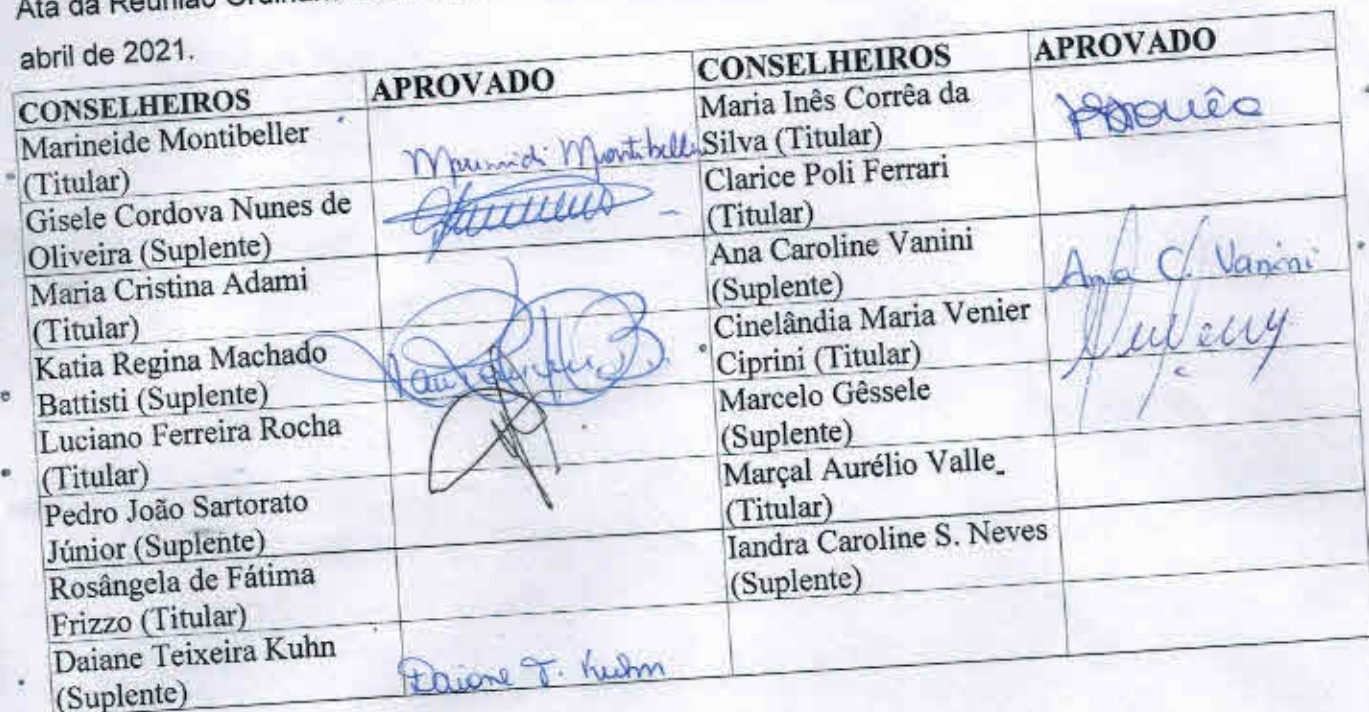 Ata da Reunião
abril de 2021.
CONSELHEIROS APROVADO CONSELHEIROS APROVADO
Marineide Montibeller
(Titular)
Marineidi Montibeller
Maria Inês Corrêa da
Silva (Titular)
Gisele Cordova Nunes de
Oliveira (Suplente)
Clarice Poli Ferrari
(Titular)
Maria Cristina Adami
(Titular)
Ana Caroline Vanini
(Suplente)
Ana C. Vanini
Katia Regina Machado
Battisti (Suplente)
Cinelândia Maria Venier
Ciprini (Titular)
Luciano Ferreira Rocha
(Titular)
Marcelo Gêssele
(Suplente)
Pedro João Sartorato
Júnior (Suplente)
Marçal Aurélio Valle
(Titular)
Rosângela de Fátima
Frizzo (Titular)
Iandra Caroline S. Neves
(Suplente)
Daiane Teixeira Kuhn
(Suplente)
Daiane T. Kuhn